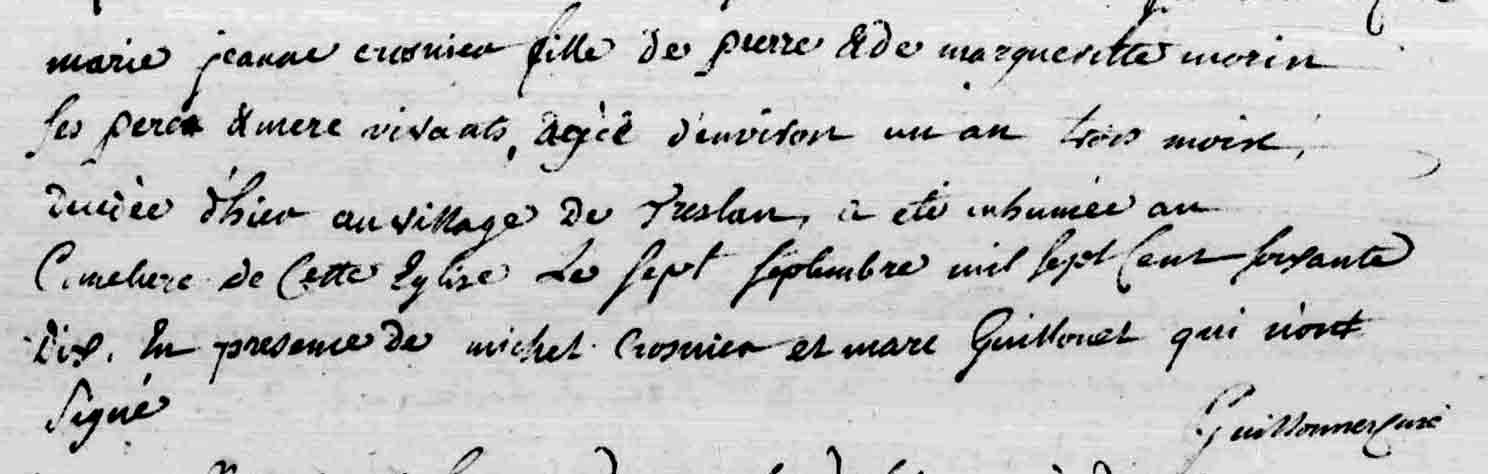 marie jeanne crosnier fille de pierre & de margueritte morin
ses pere & mere vivants, agée d'environ un an trois mois,
decedée d'hier au village de Treslan, a eté inhumée au
Cimetiere de Cette Eglise Le sept septembre mil sept Cent soixante
Dix. En presence de michel Crosnier et marc Guillouet qui n'ont
signé
Guillonner Curé